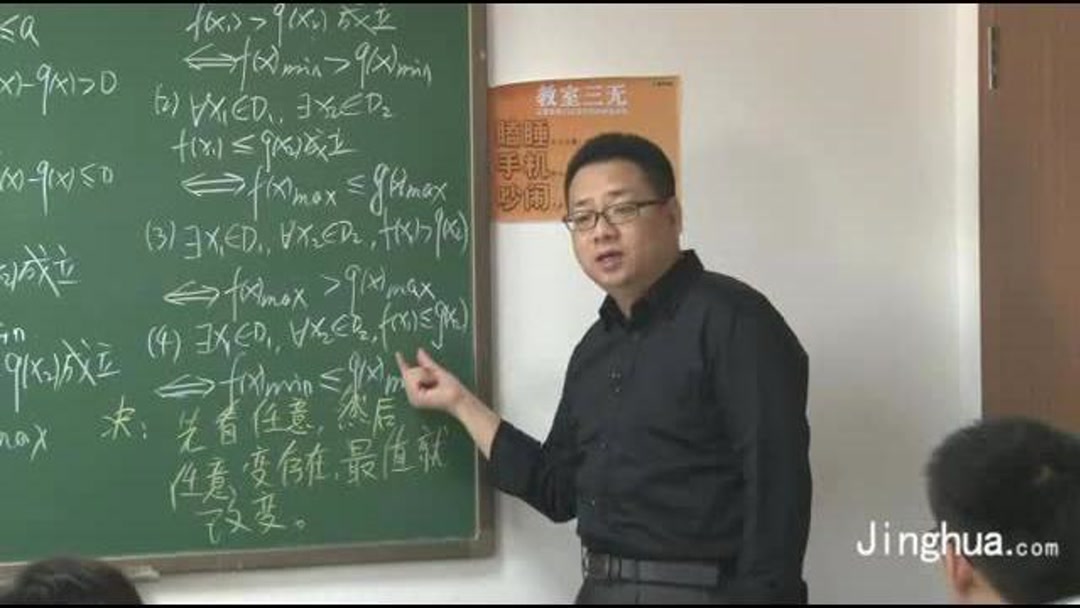 ≤a
x)-g(x)>0
x)-g(x)≤0
)成立
g(x₂)成立
max
f(x₁)>g(x₂)成立
⟺f(x)min>g(x)min
(2) ∀x₁∈D₁, ∃x₂∈D₂
f(x₁)≤g(x₂)成立
⟺f(x)max≤g(x)max
(3) ∃x₁∈D₁, ∀x₂∈D₂, f(x₁)>g(x₂)
⟺f(x)max>g(x)max
(4) ∃x₁∈D₁, ∀x₂∈D₂, f(x₁)≤g(x₂)
⟺f(x)min≤g(x)m
决: 先看任意, 然后
任意变存在, 最值就
改变。
教室三无
瞌睡
手机
吵闹
Jinghua.com